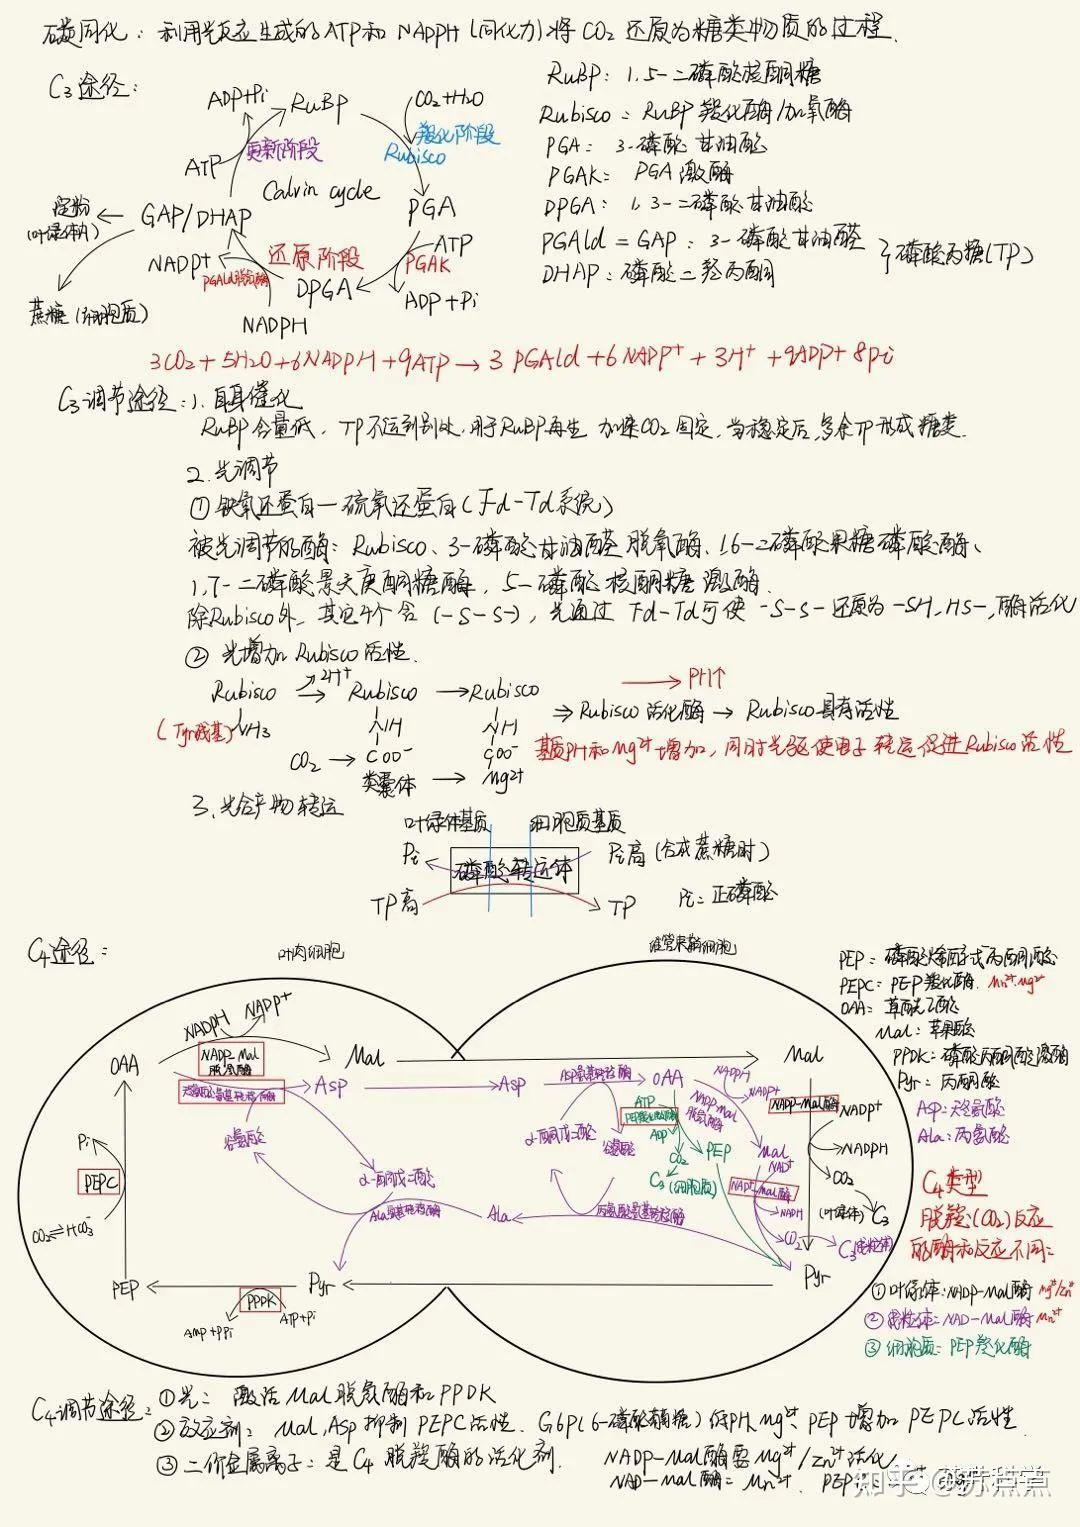 碳同化：利用光反应生成的ATP和NADPH(同化力)将CO₂还原为糖类物质的过程.
C₃途径：
ADP+Pi
RuBP
CO₂+H₂O
羧化阶段
Rubisco
更新阶段
ATP
Calvin cycle
淀粉
(叶绿体内)
GAP/DHAP
PGA
ATP
PGAK
NADP⁺
还原阶段
PGAld脱氢酶
DPGA
ADP+Pi
蔗糖(细胞质)
NADPH
RuBP：1,5-二磷酸核酮糖
Rubisco=RuBP羧化酶/加氧酶
PGA：3-磷酸甘油酸
PGAK：PGA激酶
DPGA：1,3-二磷酸甘油酸
PGAld=GAP：3-磷酸甘油醛
DHAP：磷酸二羟丙酮
}磷酸丙糖(TP)
3CO₂+5H₂O+6NADPH+9ATP→3PGAld+6NADP⁺+3H⁺+9ADP+8Pi
C₃调节途径：1.自身催化
RuBP含量低，TP不运到别处，用于RuBP再生，加速CO₂固定，当稳定后，多余TP形成糖类.
2.光调节
①铁氧还蛋白—硫氧还蛋白(Fd-Td系统)
被光调节的酶：Rubisco、3-磷酸甘油醛脱氢酶、1,6-二磷酸果糖磷酸酶、
1,7-二磷酸景天庚酮糖酶，5-磷酸核酮糖激酶.
除Rubisco外，其它4个含(-S-S-)，光通过Fd-Td可使-S-S-还原为-SH,HS-,酶活化
②光增加Rubisco活性.
Rubisco → Rubisco → Rubisco
2H⁺
→PH↑
(Tyr残基) NH₃
NH
NH
⇒Rubisco活化酶→Rubisco具有活性
CO₂→COO⁻
COO⁻
基质PH和Mg²⁺增加，同时光驱使电子转运促进Rubisco活性
类囊体→Mg²⁺
3.光合产物转运
叶绿体基质
细胞质基质
Pi
磷酸转运体
Pi高(合成蔗糖时)
TP高
TP
Pi=正磷酸
C₄途径：
叶肉细胞
维管束鞘细胞
NADPH
NADP⁺
OAA
NADP-Mal
脱氢酶
Mal
Mal
天冬氨酸氨基转移酶
Asp
Asp
Asp氨基转移酶
OAA
NADPH
NADP⁺
NADP-Mal
脱氢酶
NADP-Mal酶
NADP⁺
Pi
谷氨酸
α-酮戊二酸
谷氨酸
ATP
PEP羧化激酶
ADP
CO₂
PEP
C₃(细胞质)
Mal
NAD⁺
NADPH
CO₂
PEPC
α-酮戊二酸
NAD-Mal酶
NADH
(叶绿体)C₃
CO₂⇌HCO₃⁻
Ala氨基转移酶
Ala
丙氨酸氨基转移酶
CO₂
C₃(线粒体)
PEP
Pyr
Pyr
PPDK
AMP+PPi
ATP+Pi
PEP：磷酸烯醇式丙酮酸
PEPC：PEP羧化酶.Mn²⁺.Mg²⁺
OAA：草酰乙酸
Mal：苹果酸
PPDK：磷酸丙酮酸激酶
Pyr：丙酮酸
Asp：天冬氨酸
Ala：丙氨酸
C₄类型
脱羧(CO₂)反应
的酶和反应不同：
①叶绿体：NADP-Mal酶 Mg²⁺/Zn²⁺
②线粒体：NAD-Mal酶 Mn²⁺
③细胞质：PEP羧化酶
C₄调节途径：①光：激活Mal脱氢酶和PPDK
②效应剂：Mal,Asp抑制PEPC活性. G6P(6-磷酸葡糖)低PH,Mg²⁺,PEP增加PEPC活性.
③二价金属离子：是C₄脱羧酶的活化剂. NADP-Mal酶需Mg²⁺/Zn²⁺活化
NAD-Mal酶：Mn²⁺.
知乎